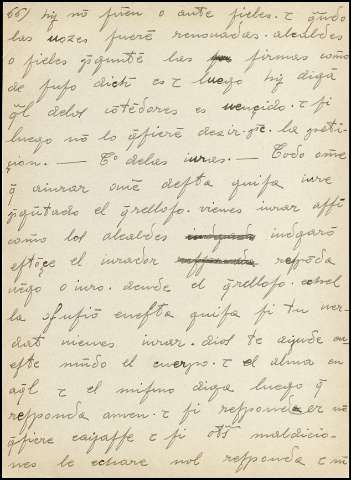 66) nj nõ pueñ o ante fieles. τ qñdo
las uozes fuerẽ renouadas. alcaldes
o fieles pgunté las firmas como
de suso dich es τ luego nj digã
ql delos cõtẽdores es uencido. τ si
luego nõ lo qfierẽ dezir
çion. — Tº delas iuras. — Todo ome
q aiurar oui̇e desta guisa iure
pgũtado el qrelloso. vienes iurar assi
como los alcaldes iudgarõ
estõçe el iurador respõda
uẽgo o iuro. dende el qrelloso.
la iusiõ enesta guisa si tu ver-
dat menes iurar. dios te ajude en
este mũdo el cuerpo. τ el alma en
aql τ el mismo diga luego q
responda amen. τ si responder nõ
qsiere τ si maldicio-
nes le echare nol responda τ nõ